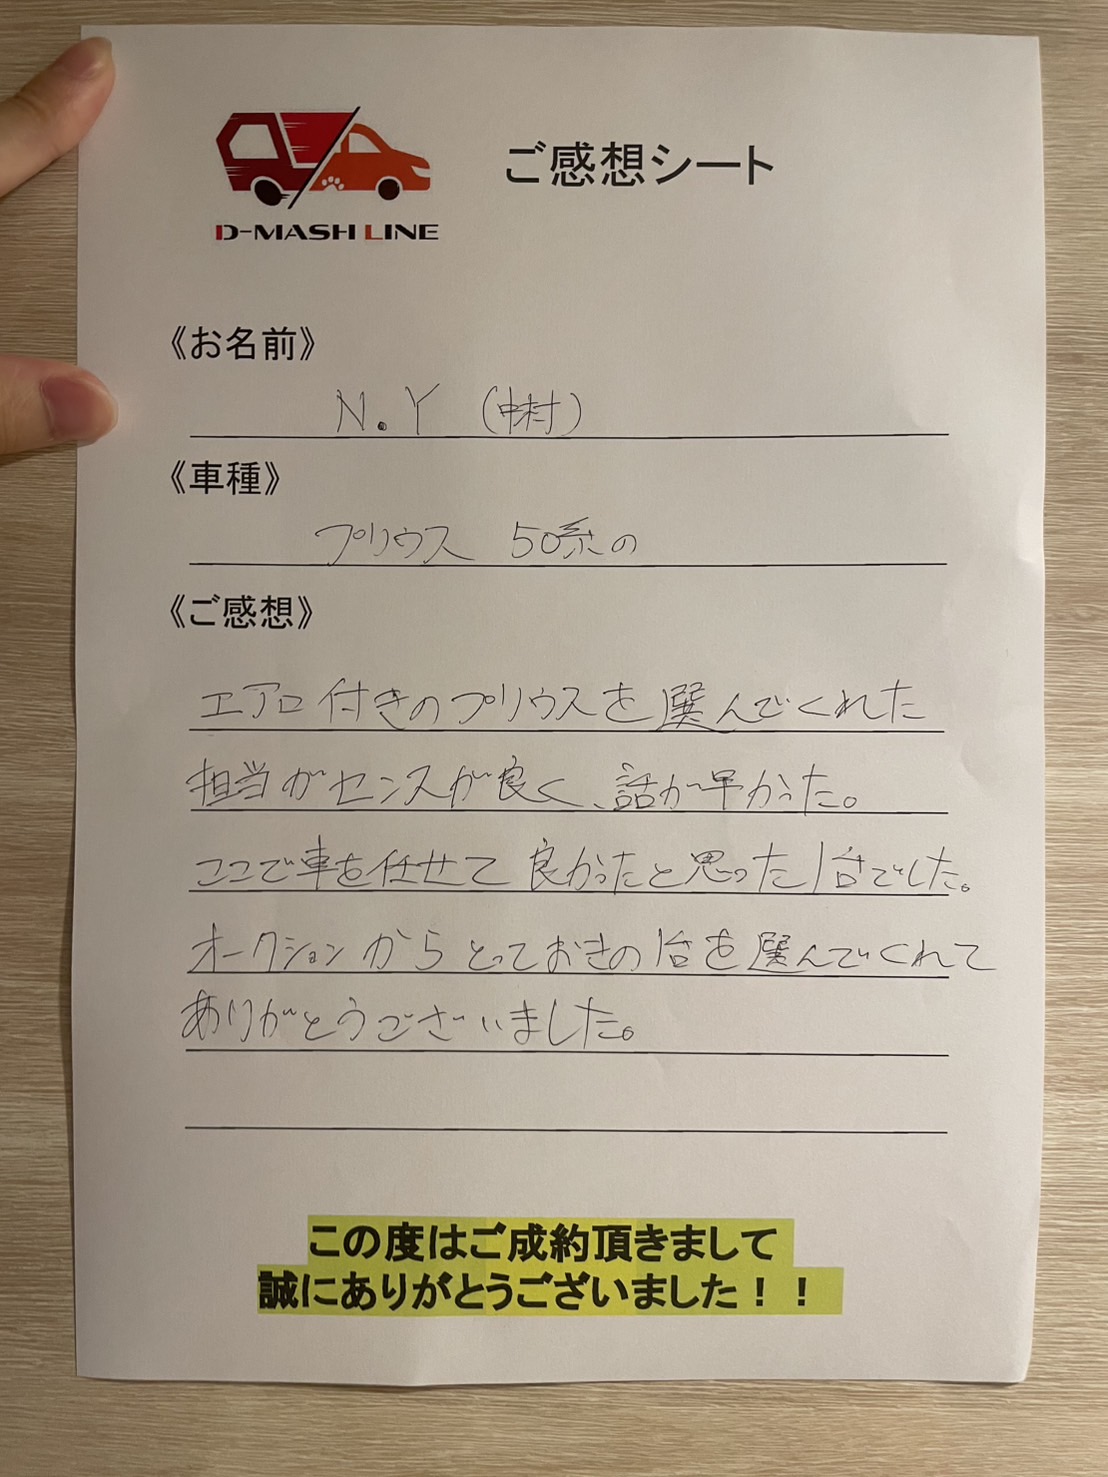 ご感想シート
D-MASH LINE
《お名前》
N.Y (中村)
《車種》
プリウス 50系の
《ご感想》
エアロ付きのプリウスを選んでくれた
担当がセンスが良く、話が早かった。
ここで車を任せて良かったと思った1台でした。
オークションからとっておきの1台を選んでくれて
ありがとうございました。
この度はご成約頂きまして
誠にありがとうございました！！